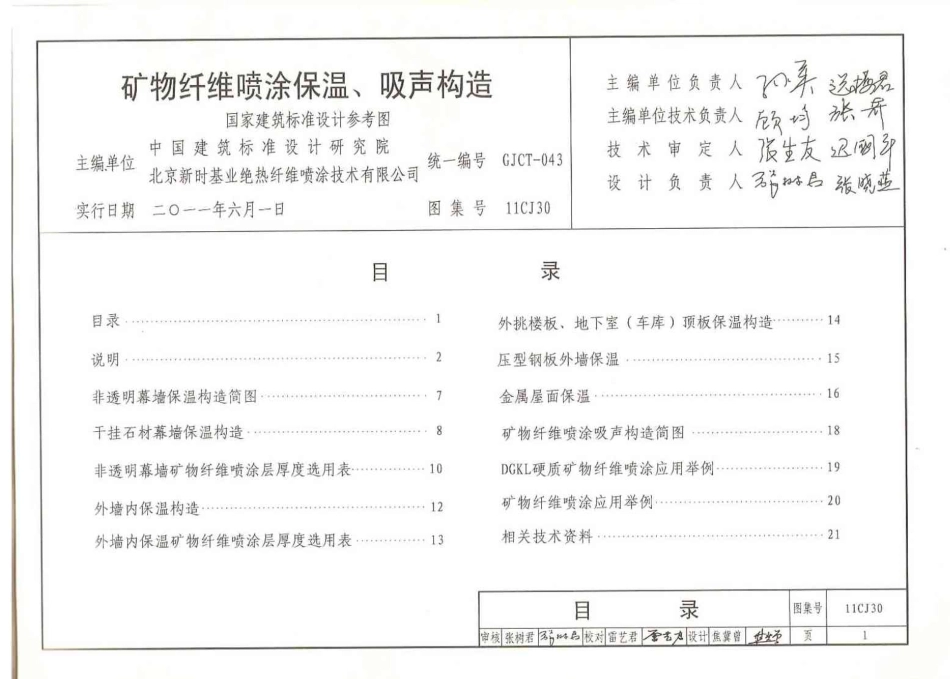 矿物纤维喷涂保温、吸声构造
国家建筑标准设计参考图
主编单位 中国建筑标准设计研究院
北京新时基业绝热纤维喷涂技术有限公司
统一编号 GJCT-043
实行日期 二〇一一年六月一日
图集号 11CJ30
主编单位负责人
主编单位技术负责人 顾均 张
技术审定人 张生友
设计负责人 张晓燕
目 录
目录 1
说明 2
非透明幕墙保温构造简图 7
干挂石材幕墙保温构造 8
非透明幕墙矿物纤维喷涂层厚度选用表 10
外墙内保温构造 12
外墙内保温矿物纤维喷涂层厚度选用表 13
外挑楼板、地下室(车库)顶板保温构造 14
压型钢板外墙保温 15
金属屋面保温 16
矿物纤维喷涂吸声构造简图 18
DGKL硬质矿物纤维喷涂应用举例 19
矿物纤维喷涂应用举例 20
相关技术资料 21
目 录 图集号 11CJ30
审核 张树君 校对 雷艺君 设计 焦冀曾 页 1